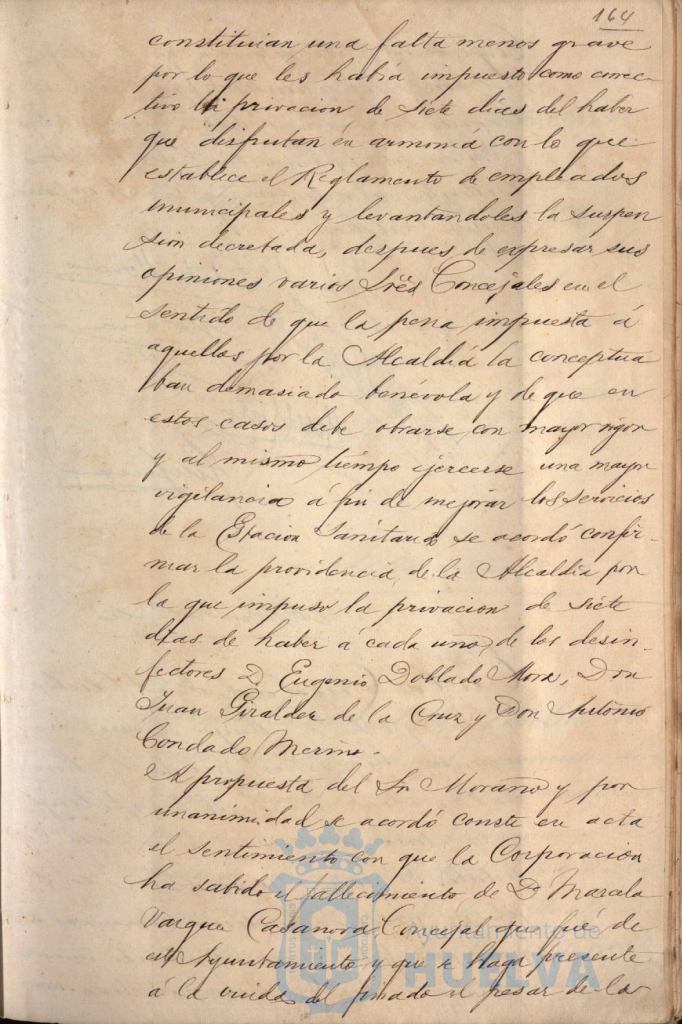 164
constituian una falta menos grave
por lo que les habia impuesto como correc-
tivo la privacion de siete dias del haber
que disfrutan én armonia con lo que
establece el Reglamento de empleados
municipales y levantandoles la suspen
sion decretada, despues de expresar sus
opiniones varios Sres Concejales en el
sentido de que la pena impuesta á
aquellos por la Alcaldia la conceptua
ban demasiado benévola y de que en
estos casos debe obrarse con mayor rigor
y al mismo tiempo ejercerse una mayor
vigilancia á fin de mejorar los servicios
de la Estacion Sanitaria se acordó confir-
mar la providencia de la Alcaldia por
la que impuso la privacion de siete
dias de haber á cada uno de los desin-
fectores D. Eugenio Doblado Mora, Don
Juan Giralder de la Cruz y Don Antonio
Condado Merino.
A propuesta del Sr Morano y por
unanimidad se acordó conste en acta
el sentimiento con que la Corporacion
ha sabido el fallecimiento de D. Marcela
Varque Casanova Concejal que fué de
este Ayuntamiento y que se haga presente
á la viuda del finado el pesar de la
Ayuntamiento de
HUELVA